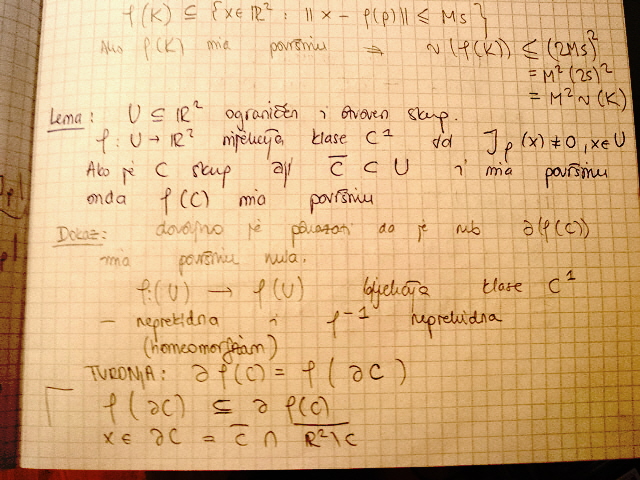 φ(K) ⊆ {x ∈ ℝ² : ||x − φ(p)|| ≤ Ms}
Ako φ(K) ima površinu ⇒ ν(φ(K)) ≤ (2Ms)²
= M²(2s)²
= M² ν(K)
Lema: U ⊆ ℝ² ograničen i otvoren skup.
φ: U → ℝ² injekcija klase C¹ td J_φ(x) ≠ 0, x ∈ U
Ako je C skup C̅ ⊂ U i ima površinu
onda φ(C) ima površinu
Dokaz: dovoljno je pokazati da je rub ∂(φ(C))
ima površinu nula.
φ:(U) → φ(U) bijekcija klase C¹
– neprekidna i φ⁻¹ neprekidna
(homeomorfizam)
TVRDNJA: ∂φ(C) = φ(∂C)
φ(∂C) ⊆ ∂φ(C)
x ∈ ∂C = C̅ ∩ \overline{ℝ²\C}